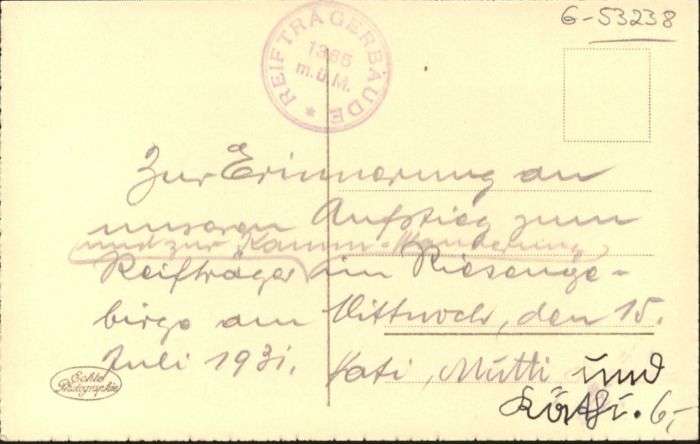 6-53238
REIFTRÄGERBAUDE
1366
m.ü.M.
Zur Erinnerung an
unseren Aufstieg zum
und zur Kamm-Wanderung
Reifträger im Riesenge-
birge am Mittwoch, den 15.
Juli 1931. Vati, Mutti und
Käthi. 6,-
Echte
Photographie